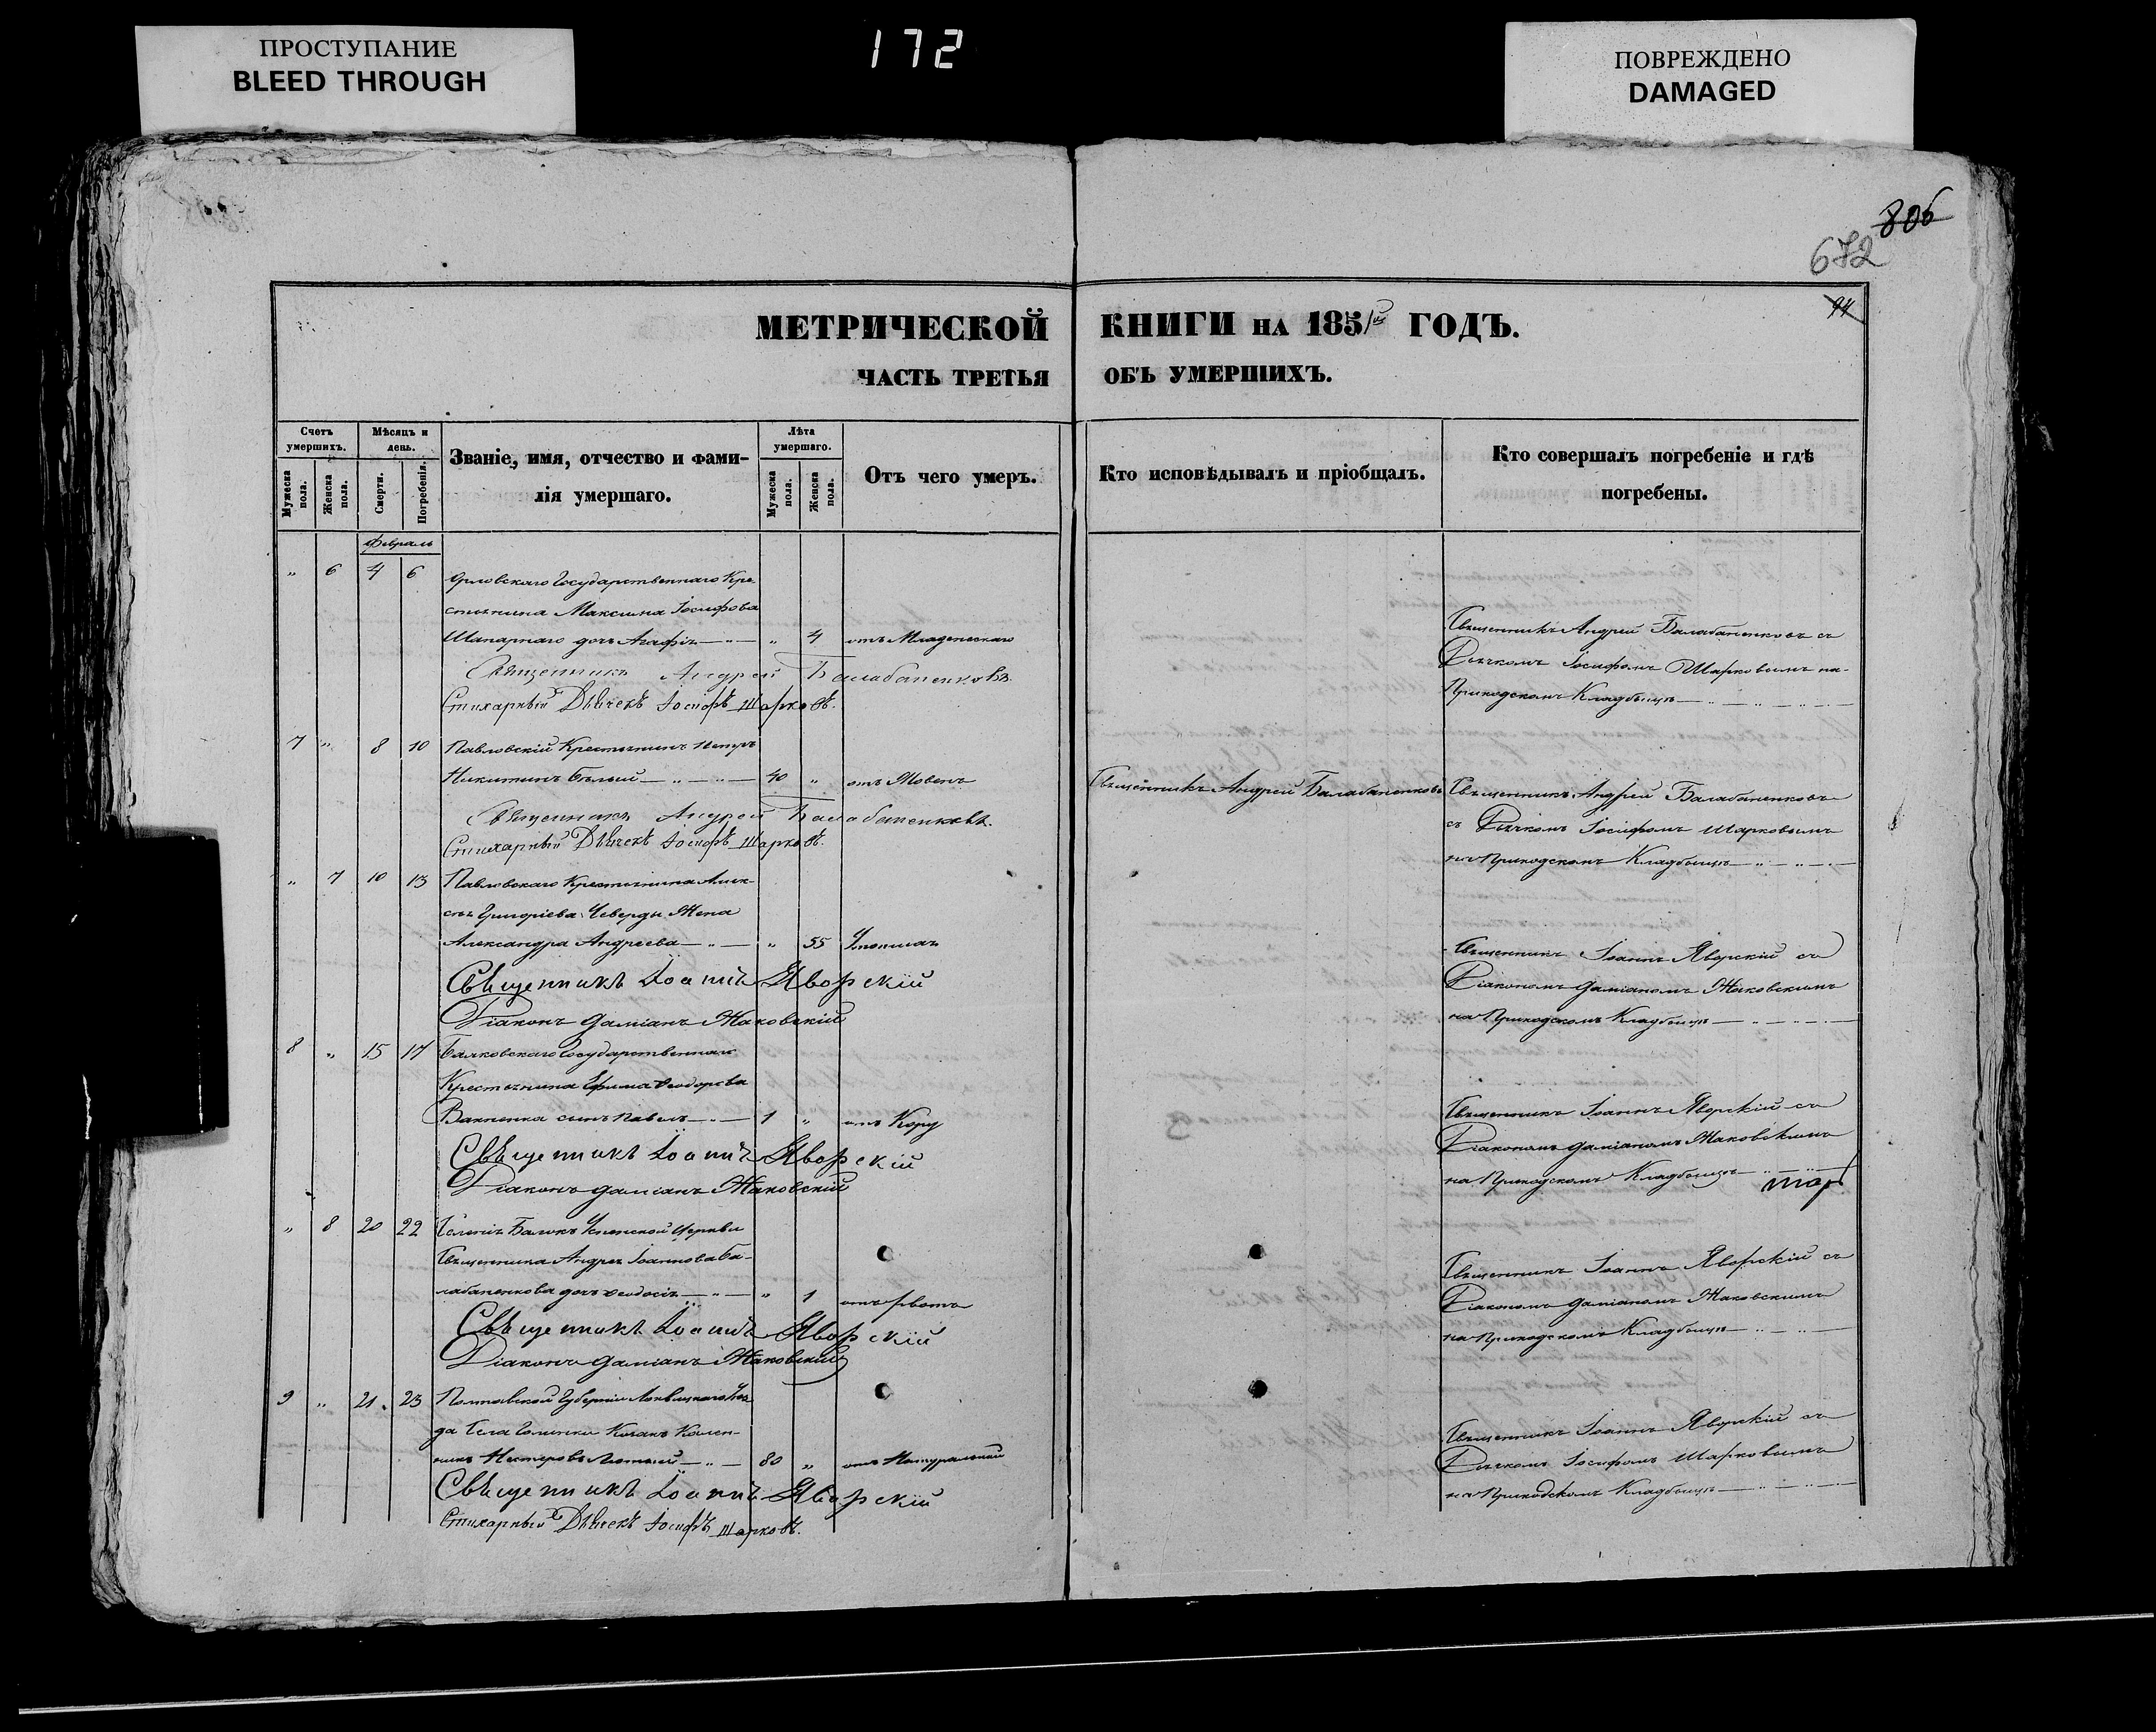 ПРОСТУПАНИЕ
BLEED THROUGH
172
ПОВРЕЖДЕНО
DAMAGED
806
672
94
МЕТРИЧЕСКОЙ КНИГИ НА 1851й ГОДЪ.
ЧАСТЬ ТРЕТЬЯ ОБЪ УМЕРШИХЪ.
Счетъ умершихъ.
Мужеска пола.
Женска пола.
Мѣсяцъ и день.
Смерти.
Погребенія.
Званіе, имя, отчество и фами-
лія умершаго.
Лѣта умершаго.
Мужеска пола.
Женска пола.
Отъ чего умеръ.
Кто исповѣдывалъ и пріобщалъ.
Кто совершалъ погребеніе и гдѣ
погребены.
Февраль
" 6 4 6 Орловскаго Государственнаго Кре
стьянина Максима Іосифова
Шапарнаго дочь Агафія " 4 отъ Младенческаго
Священникъ Андрей Балабаненковъ с
Дьячкомъ Іосифомъ Шарковымъ на
Приходскомъ Кладбищѣ
Священникъ Андрей Балабаненковъ
Стихарный Дьячекъ Іосифъ Шарковъ.
7 " 8 10 Павловскій Крестьянинъ Петръ
Никитинъ Бѣлый 40 " отъ
Священникъ Андрей Балабаненковъ
Священникъ Андрей Балабаненковъ
съ Дьячкомъ Іосифомъ Шарковымъ
на Приходскомъ Кладбищѣ
Священникъ Андрей Балабаненковъ.
Стихарный Дьячекъ Іосифъ Шарковъ.
" 7 10 13 Павловскаго Крестьянина Алек-
сѣя Григоріева Чеверды Жена
Александра Андреева " 55
Священникъ Іоаннъ Яворскій съ
Діакономъ Даміаномъ Маковскимъ
на Приходскомъ Кладбищѣ
Священникъ Іоаннъ Яворскій
Діаконъ Даміанъ Маковскій
8 " 15 17 Балковскаго Государственнаго
Крестьянина Ефима Феодорова
сынъ Павелъ 1 " отъ Кору
Священникъ Іоаннъ Яворскій съ
Діакономъ Даміаномъ Маковскимъ
на Приходскомъ Кладбищѣ
Священникъ Іоаннъ Яворскій
Діаконъ Даміанъ Маковскій
" 8 20 22 Селенія Балокъ Успенской Церкви
Священника Андрея Іоаннова Ба-
лабаненкова дочь Феодосія " 1 отъ рвоты
Священникъ Іоаннъ Яворскій съ
Діакономъ Даміаномъ Маковскимъ
на Приходскомъ Кладбищѣ
Священникъ Іоаннъ Яворскій
Діаконъ Даміанъ Маковскій
9 " 21 23 Полтавской Губерніи Лохвицкаго Уѣз
да Села Козакъ Кален-
никъ Нестеровъ Лютый 80 " отъ Натуральной
Священникъ Іоаннъ Яворскій съ
Дьячкомъ Іосифомъ Шарковымъ
на Приходскомъ Кладбищѣ
Священникъ Іоаннъ Яворскій
Стихарный Дьячекъ Іосифъ Шарковъ.